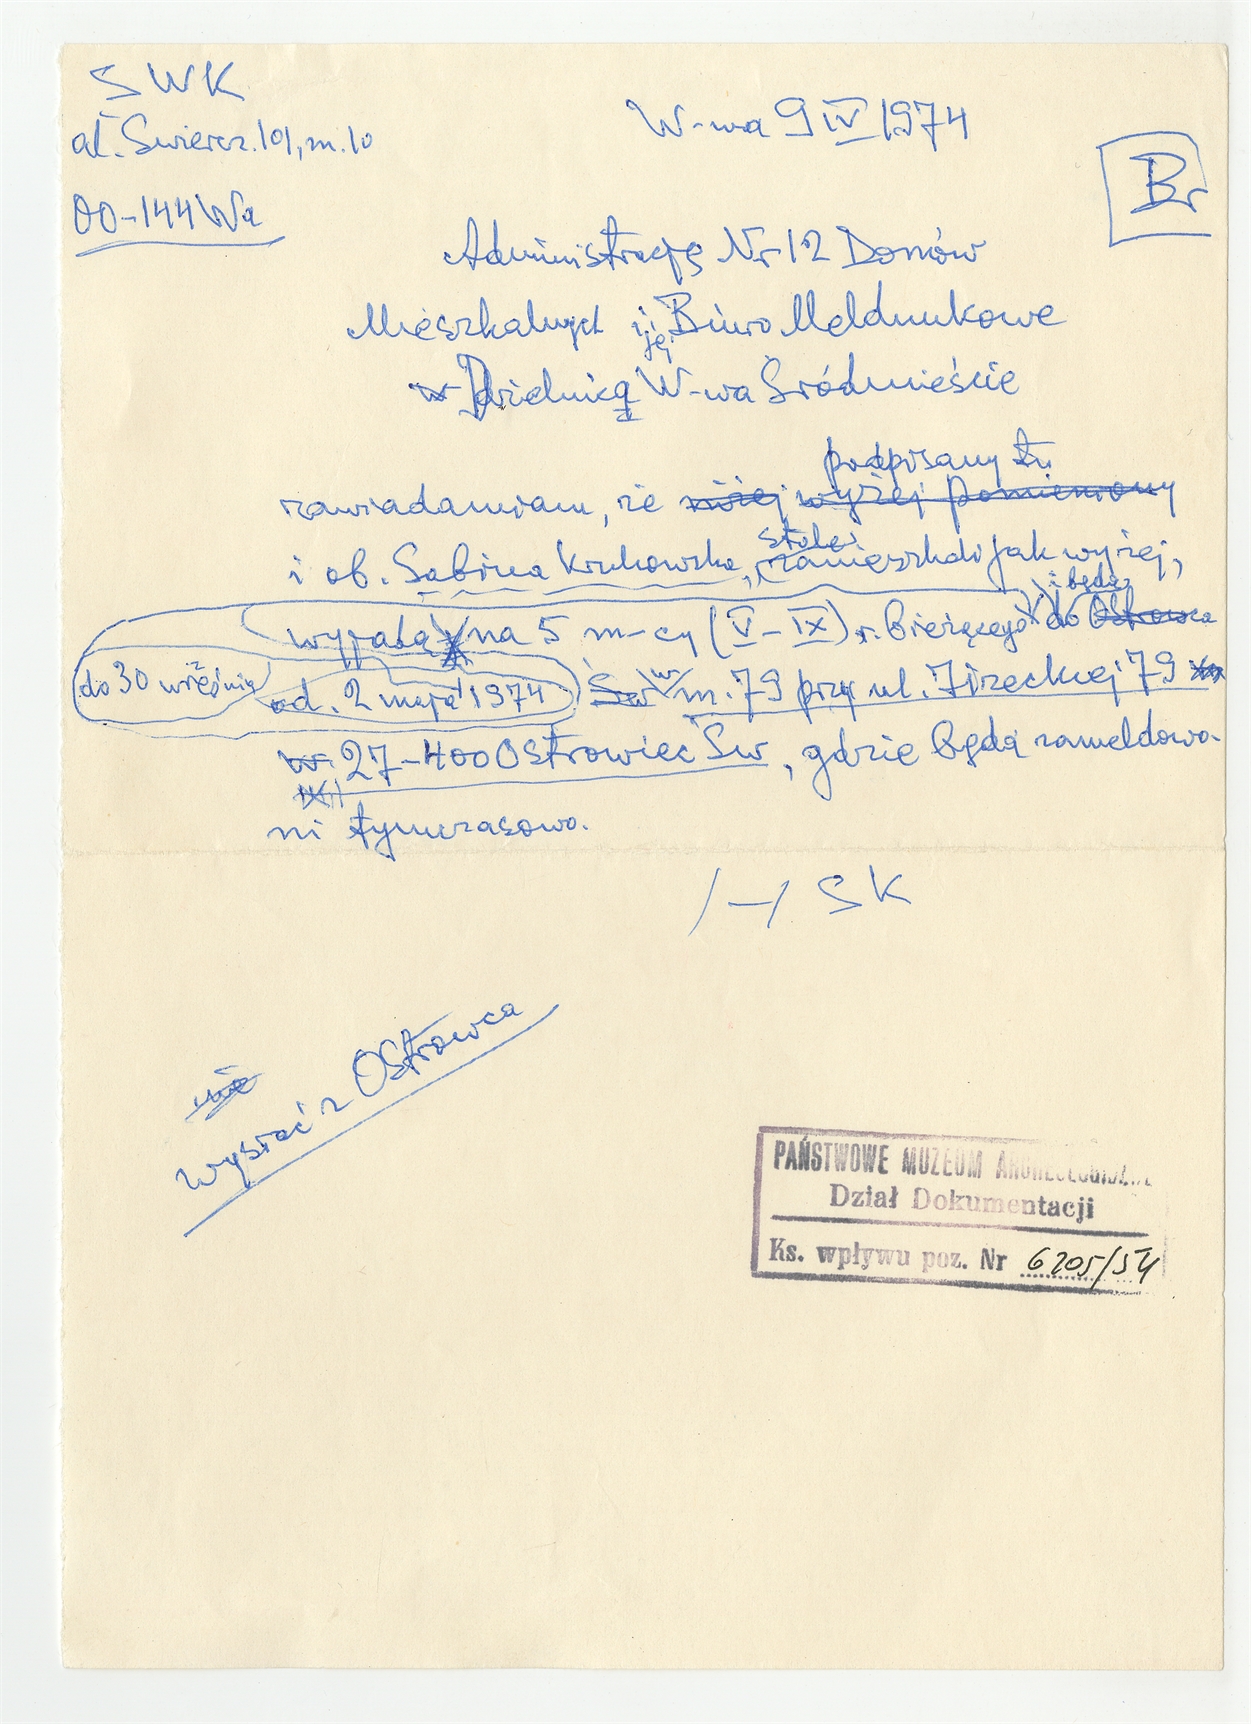 SWK
al. Swiercz. 101, m. 10
00-144 Wa
W-wa 9 IV 1974
Br
Administrację Nr 12 Domów
Mieszkalnych i jej Biuro Meldunkowe
w Dzielnicą W-wa Śródmieście
podpisany tu
zawiadamiam, że niżej wyżej pomieniony
stale
i ob. Sabina Krukowska, zamieszkali jak wyżej,
i będą
wyjadą na 5 m-cy (V-IX) r. bieżącego do Ostrowca
do 30 września od. 2 maja 1974 Św w m. 79 przy ul. Iłżeckiej 79
w 27-400 Ostrowiec Św, gdzie będą zameldowa-
ni tymczasowo.
/-/ SK
nie
wysłać z Ostrowca
PAŃSTWOWE MUZEUM ARCHEOLOGICZNE
Dział Dokumentacji
Ks. wpływu poz. Nr 6205/54